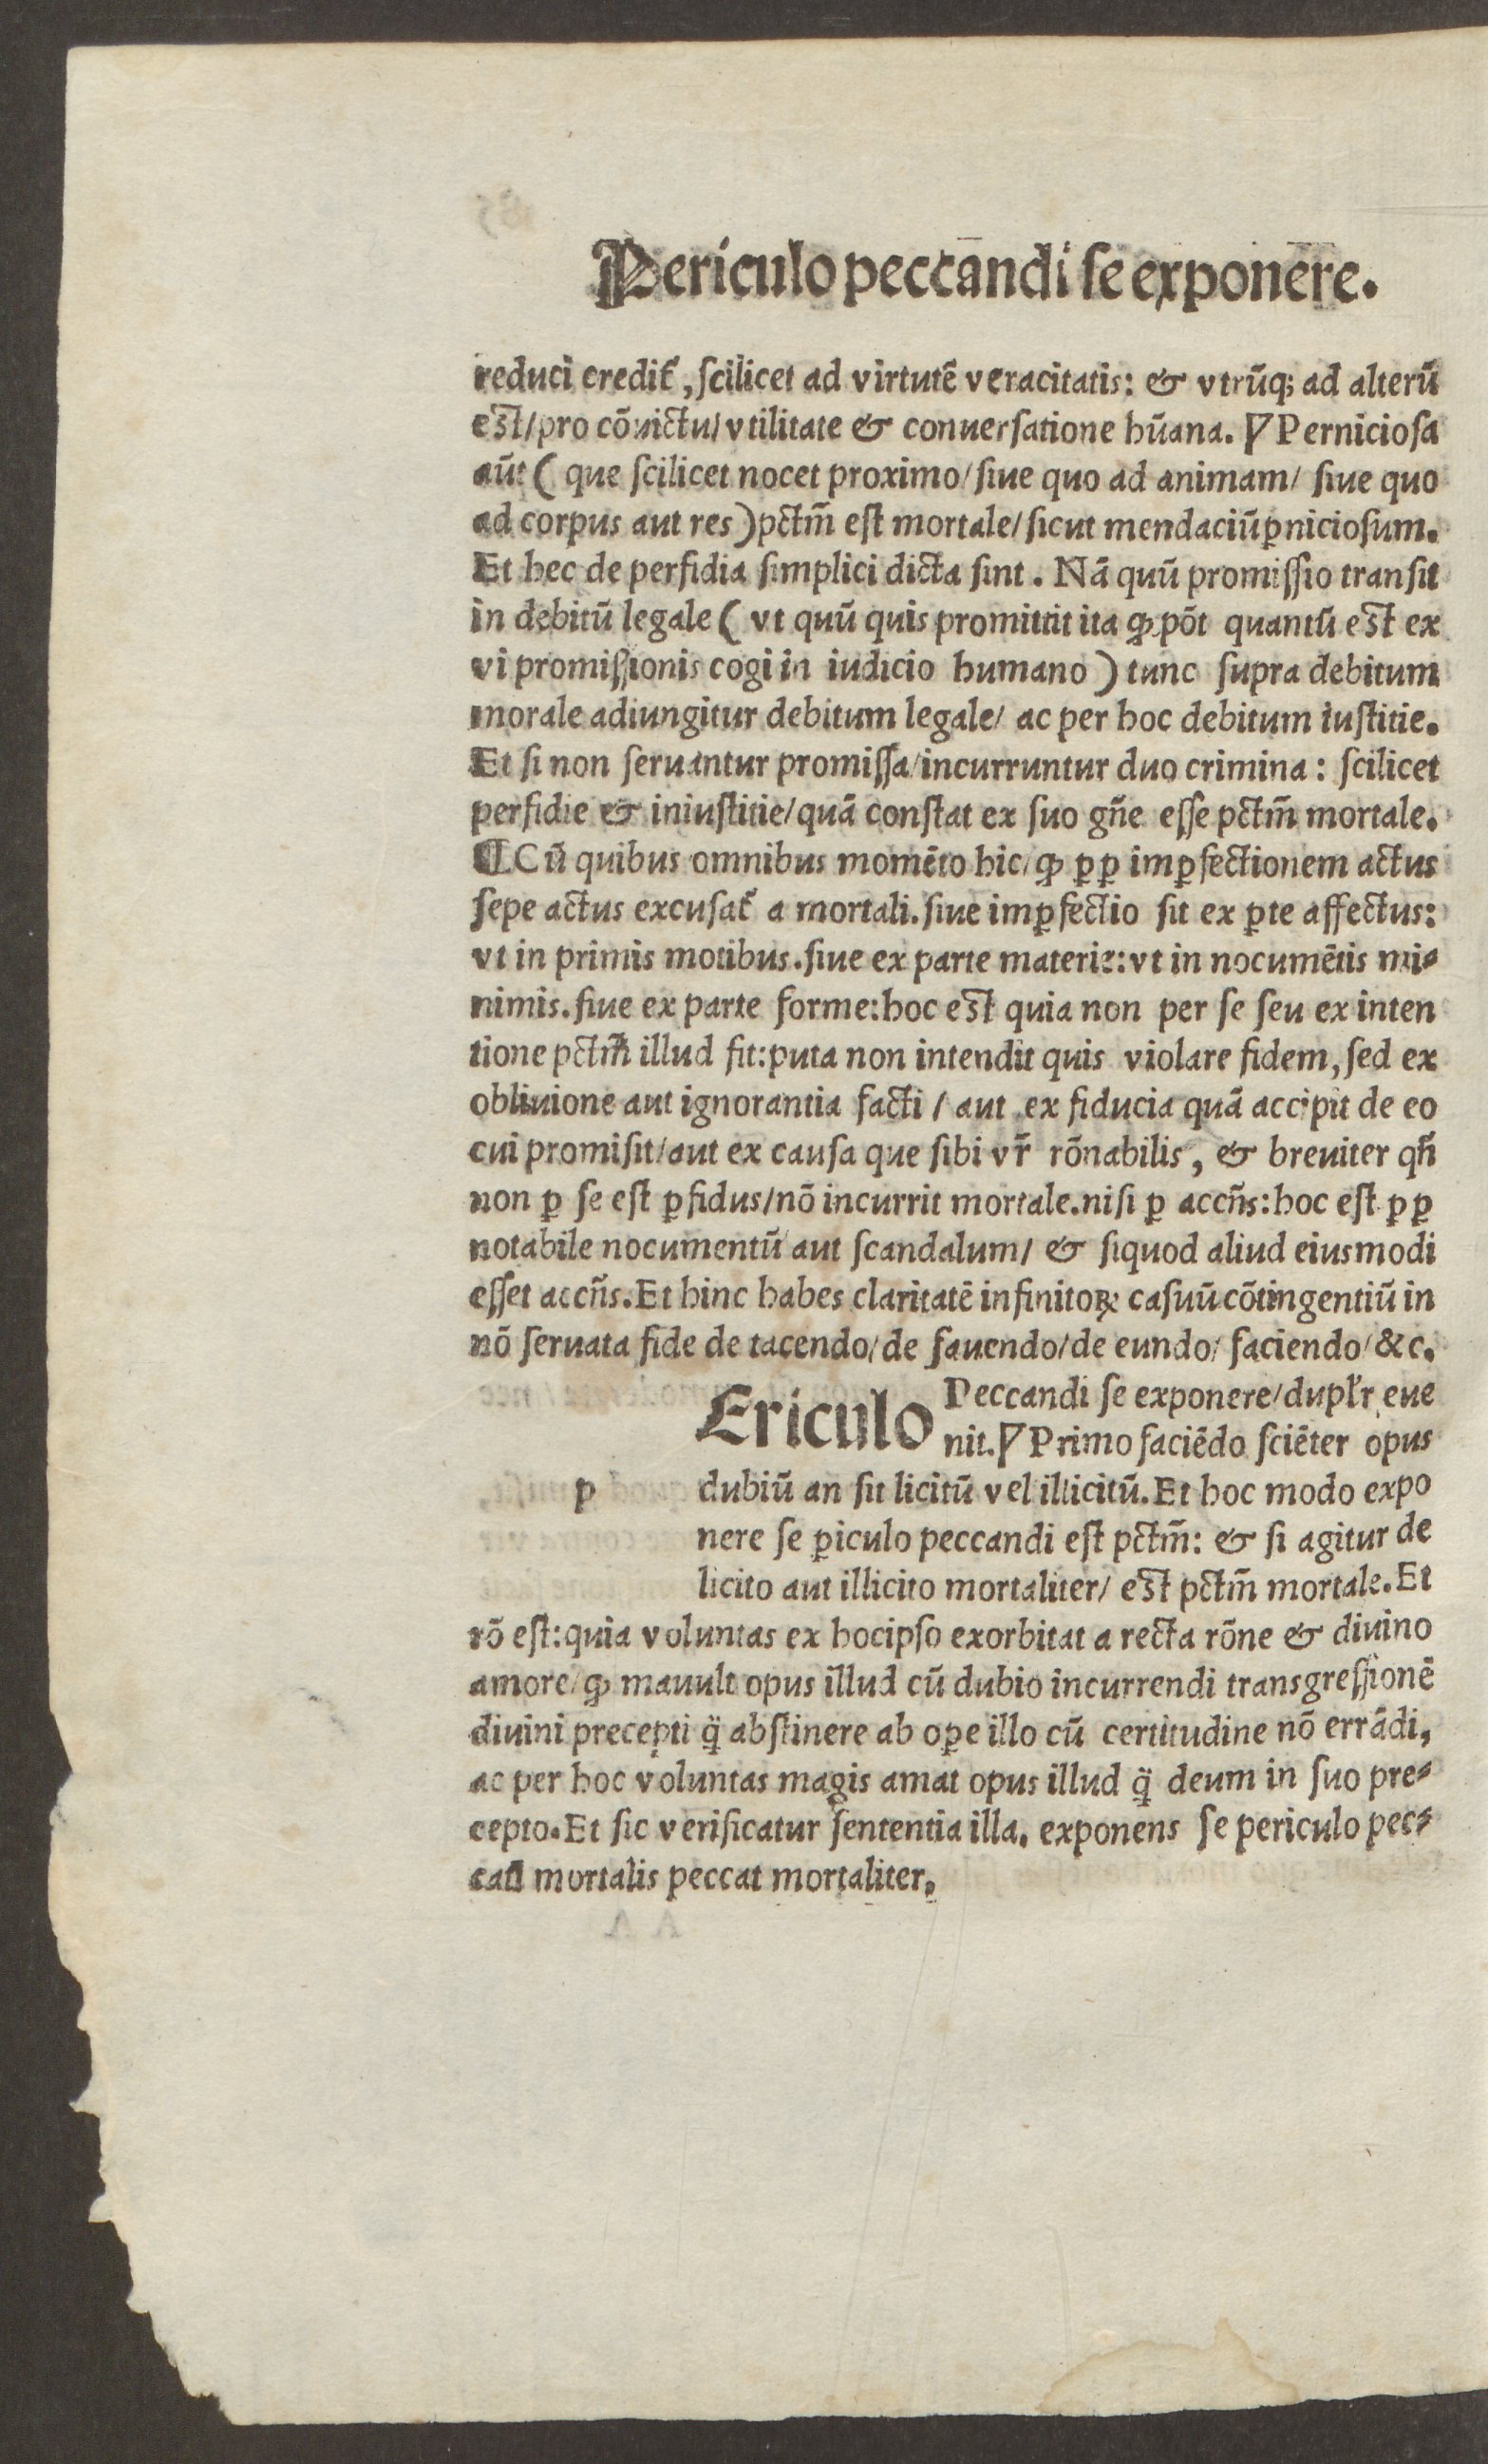 Periculo peccandi se exponere.
reduci credit᷑, ſcilicet ad virtutē veracitatis: & vtrūq; ad alterū
eſt/pro cōuictu/vtilitate & conuerſatione hūana. ⁋Pernicioſa
aūt (que ſcilicet nocet proximo/ſiue quo ad animam/ ſiue quo
ad corpus aut res) pctm̄ eſt mortale/ſicut mendaciū ꝑnicioſum.
Et hec de perfidia ſimplici dicta ſint. Nā quū promiſſio tranſit
in debitū legale (vt quū quis promittit ita ꝙ pōt quantū eſt ex
vi promiſſionis cogi in iudicio humano) tunc ſupra debitum
morale adiungitur debitum legale/ ac per hoc debitum iuſtitie.
Et ſi non ſeruantur promiſſa/incurruntur duo crimina: ſcilicet
perfidie & iniuſtitie/quā conſtat ex ſuo gn̄e eſſe pctm̄ mortale.
¶Cū quibus omnibus momēto hic/ꝙ ꝑꝑ imꝑfectionem actus
ſepe actus excuſat᷑ a mortali.ſiue imꝑfectio ſit ex ꝑte affectus:
vt in primis motibus.ſiue ex parte materie:vt in nocumētis mi⸗
nimis.ſiue ex parte forme:hoc eſt quia non per ſe ſeu ex inten
tione pctm̄ illud fit:puta non intendit quis violare fidem, ſed ex
obliuione aut ignorantia facti/ aut ex fiducia quā accipit de eo
cui promiſit/aut ex cauſa que ſibi vr̄ rōnabilis, & breuiter qn̄
non ꝑ ſe eſt ꝑfidus/nō incurrit mortale.niſi ꝑ accn̄s:hoc eſt ꝑꝑ
notabile nocumentū aut ſcandalum/ & ſiquod aliud eiuſmodi
eſſet accn̄s.Et hinc habes claritatē infinitoꝝ caſuū cōtingentiū in
nō ſeruata fide de tacendo/de fauendo/de eundo/ faciendo/&c.
Ericulo Peccandi ſe exponere/dupl'r eue
nit.⁋Primo faciēdo ſciēter opus
p dubiū an ſit licitū vel illicitū.Et hoc modo expo
nere ſe ꝑiculo peccandi eſt pctm̄: & ſi agitur de
licito aut illicito mortaliter/ eſt pctm̄ mortale.Et
rō eſt:quia voluntas ex hocipſo exorbitat a recta rōne & diuino
amore/ꝙ mauult opus illud cū dubio incurrendi transgreſſionē
diuini precepti q̄̈ abſtinere ab oꝑe illo cū certitudine nō errādi,
ac per hoc voluntas magis amat opus illud q̄̈ deum in ſuo pre⸗
cepto.Et ſic verificatur ſententia illa. exponens ſe periculo pec⸗
cati mortalis peccat mortaliter.